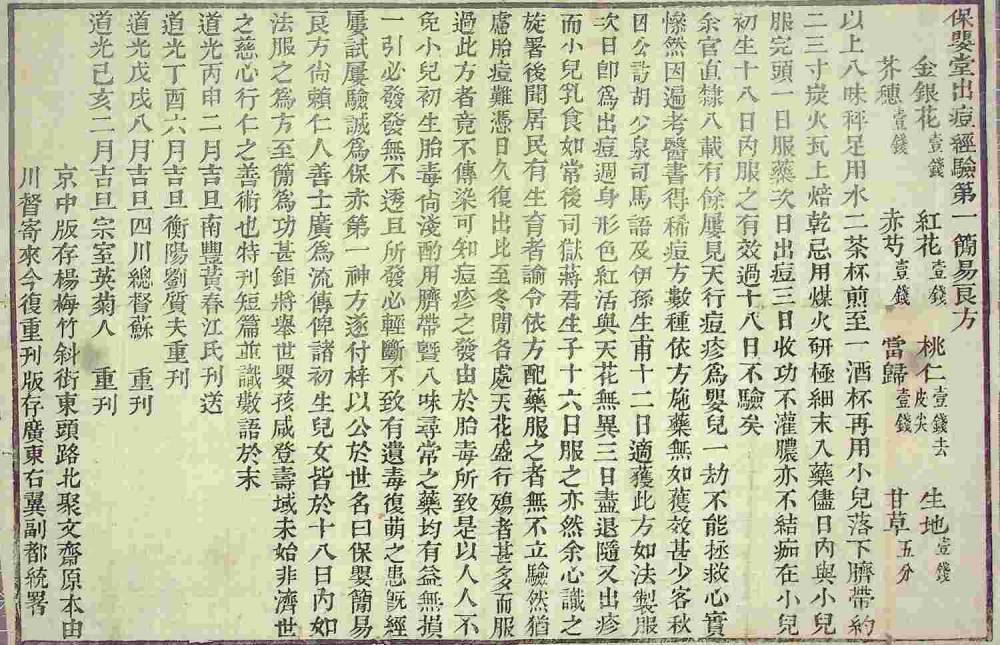 保嬰堂出痘經驗第一簡易良方
金銀花壹錢 紅花壹錢 桃仁壹錢去皮尖 生地壹錢
芥穗壹錢 赤芍壹錢 當歸壹錢 甘草五分
以上八味秤足用水二茶杯煎至一酒杯再用小兒落下臍帶約
二三寸炭火瓦上焙乾忌用煤火研極細末入藥儘日內與小兒
服完頭一日服藥次日出痘三日收功不灌膿亦不結痂在小兒
初生十八日內服之有效過十八日不驗矣
余官直隸八載有餘屢見天行痘疹爲嬰兒一劫不能拯救心實
慘然因遍考醫書得稀痘方數種依方施藥無如獲效甚少客秋
因公訪胡少泉司馬語及伊孫生甫十二日適獲此方如法製服
次日卽爲出痘週身形色紅活與天花無異三日盡退隨又出疹
而小兒乳食如常後司獄蔣君生子十六日服之亦然余心識之
旋署後聞居民有生育者諭令依方配藥服之者無不立驗然猶
慮胎痘難憑日久復出比至冬閒各處天花盛行殤者甚多而服
過此方者竟不傳染可知痘疹之發由於胎毒所致是以人人不
免小兒初生胎毒尙淺酌用臍帶暨八味尋常之藥均有益無損
一引必發發無不透且所發必輕斷不致有遺毒復萌之患旣經
屢試屢驗誠爲保赤第一神方遂付梓以公於世名曰保嬰簡易
良方尙賴仁人善士廣爲流傳俾諸初生兒女皆於十八日內如
法服之爲方至簡爲功甚鉅將舉世嬰孩咸登壽域未始非濟世
之慈心行仁之善術也特刊短篇並識數語於末
道光丙申二月吉旦南豐黃春江氏刊送
道光丁酉六月吉旦衡陽劉質夫重刊
道光戊戌八月吉旦四川總督蘇 重刊
道光己亥二月吉旦宗室英菊人 重刊
京中版存楊梅竹斜街東頭路北聚文齋原本由
川督寄來今復重刊版存廣東右翼副都統署